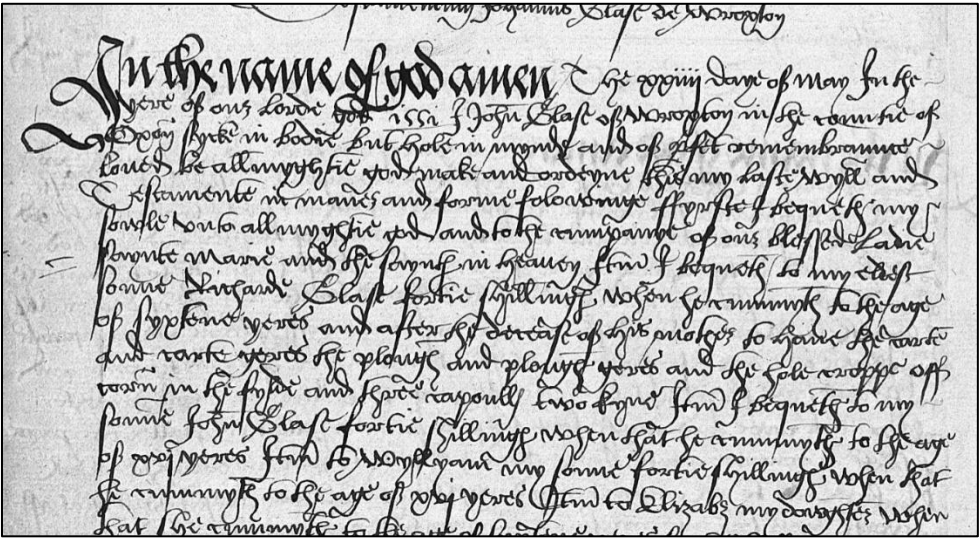 Testamentum Johannis Blase de Wroxton
In the name of god amen The xxiiii daye of may In the
yere of our lorde god 1551 I John Blase of Wroxton in the countie of
Oxon sycke in bodie but hole in mynde and of pfet remembraunce
loved be allmyghtie god make and ordeyne this my laste wyll and
Testamente in maner and forme folowinge ffyrste I bequeth my
sowle unto allmyghtie god and to the cumpanye of our blessed Ladie
saynte marie and the saynts in heaven Itm I bequeth to my eldest
sonne Richarde Blase fortie shillings when he cummyth to the age
of syxtene yeres and after the decease of his mother to have the carte
and carte geres the plough and plough geres and the hole croppe off
corne in the fylde and three capoulls two kyne Itm I bequeth to my
sonne John Blase fortie shillings when that he cummyth to the age
of xvi yeres Itm to Wyllyame my sonne fortie shillings when that
he cummyth to the age of xvi yeres Itm to Elizabz my doughter when
that she cummyth to the age of